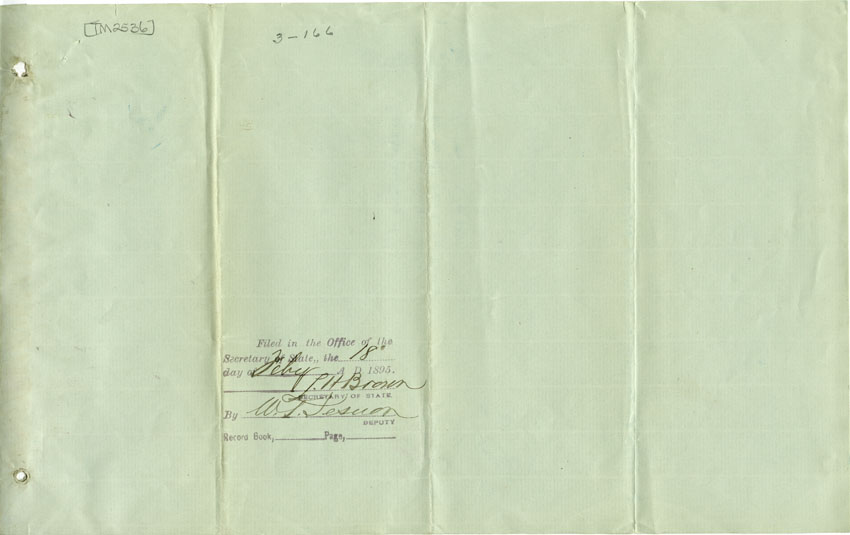 [TM2536]
3-166
Filed in the Office of the
Secretary of State, the 18"
day of Feby A D 1895.
Brown
SECRETARY OF STATE.
By
DEPUTY
Record Book, Page,